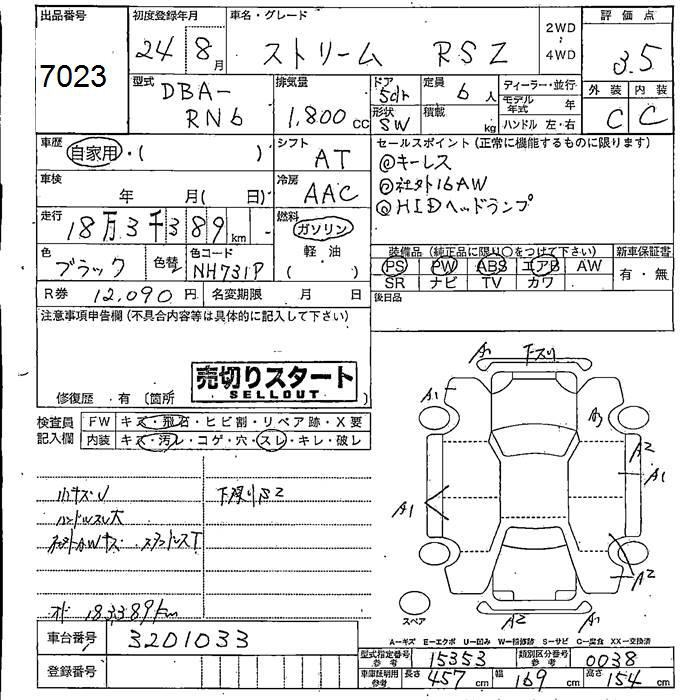 出品番号
7023
初度登録年月
24 8月
車名・グレード
ストリーム RSZ
2WD
4WD
評価点
3.5
外装 内装
C C
型式
DBA-
RN6
排気量
1,800 cc
ドア
5dr
形状
SW
定員
6人
積載
kg
ディーラー・並行
モデル年式 年
ハンドル 左・右
車歴
自家用・( )
シフト
AT
セールスポイント(正常に機能するものに限ります)
◎キーレス
◎社外16AW
◎HIDヘッドランプ
車検
年 月( 日)
冷房
AAC
走行
18万3千389km
燃料
ガソリン
軽油
( )
色
ブラック
色替
色コード
NH731P
装備品(純正品に限り○をつけて下さい)
PS PW ABS エアB AW
SR ナビ TV カワ
新車保証書
有・無
R券 12,090円
名変期限 月 日
後日品
注意事項申告欄(不具合内容等は具体的に記入して下さい)
修復歴 有(箇所 )
売切りスタート
SELLOUT
検査員
記入欄
FW キズ・飛石・ヒビ割・リペア跡・X要
内装 キズ・汚レ・コゲ・穴・スレ・キレ・破レ
小キズU
下廻りS2
ハンドルスレ大
オド 183389km
A1 下スリ
A1
A3
A2
A1
A1
A2
A2 A1
スペア
A−キズ E−エクボ U−凹み W−補修跡 S−サビ C−腐食 XX−交換済
車台番号
3201033
登録番号
型式指定番号
参考
15353
類別区分番号
参考
0038
車庫証明用
参考
長さ 457cm 幅 169cm 高さ 154cm